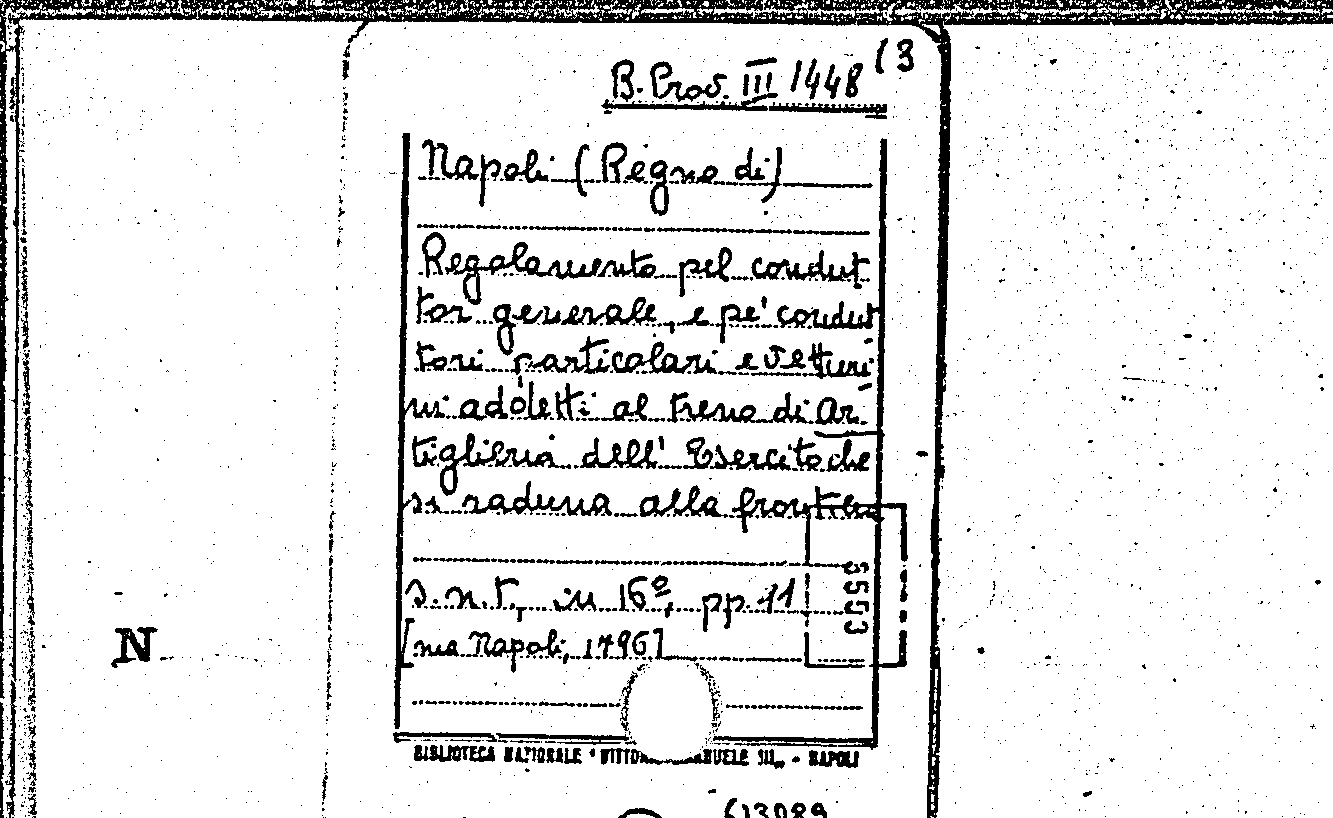 B. Prov. III 1448 (3
Napoli (Regno di)
Regolamento pel condut
tor generale, e pe' condut
tori particolari e vetturi
ni addetti al treno di Ar
tiglieria dell' Esercito che
si raduna alla frontiera
s.n.t., in 16º, pp. 11
[ma Napoli, 1796]
3553
N
BIBLIOTECA NAZIONALE "VITTOR ANUELE III„ - NAPOLI